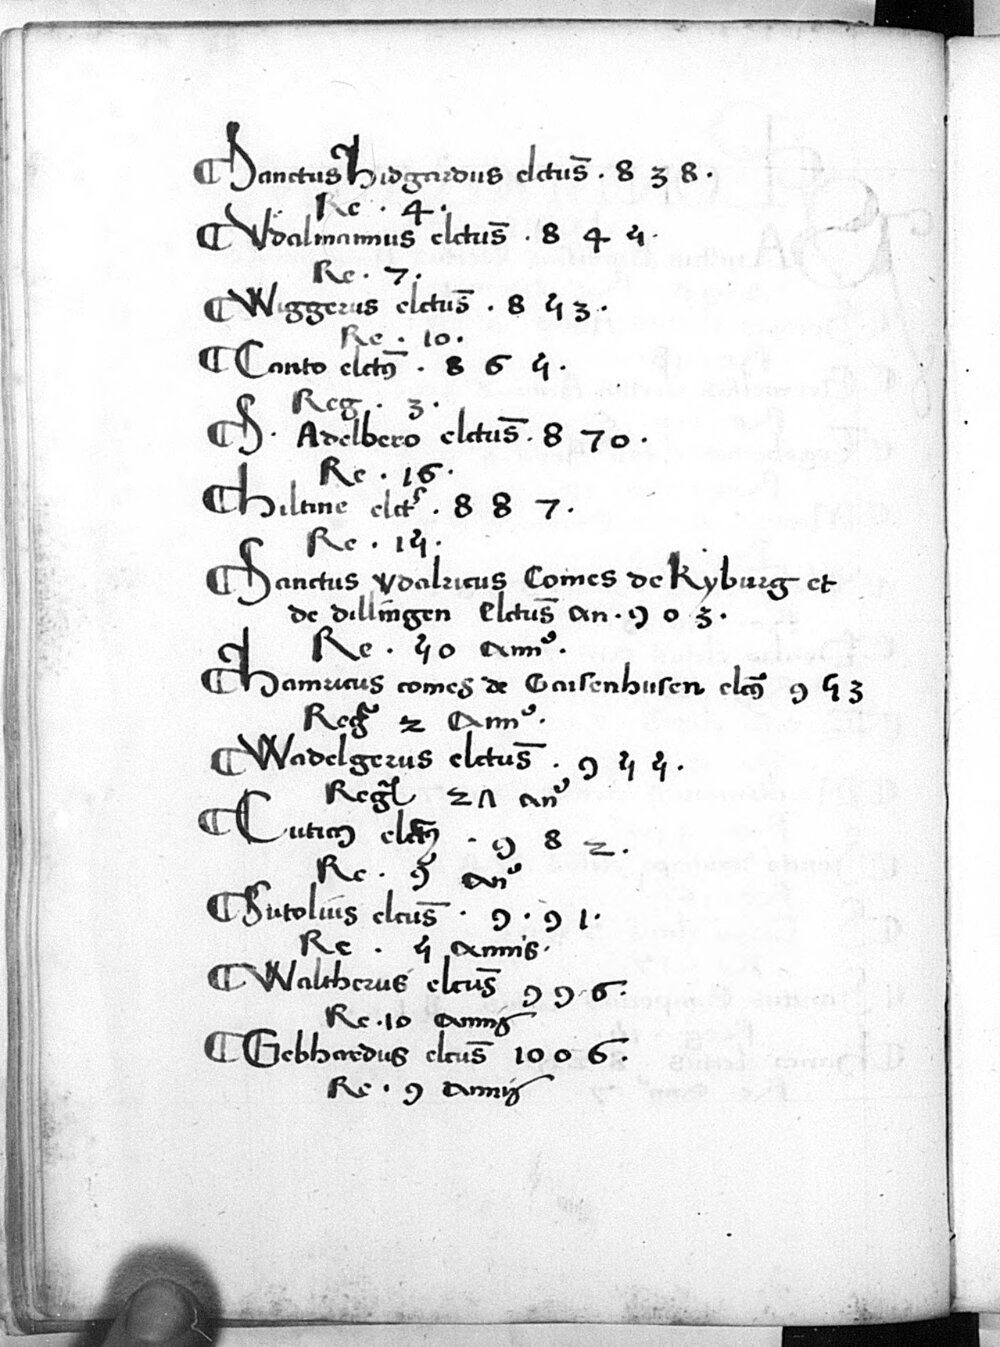 Sanctus Hidgardus elctus̄ · 8 3 8 ·
Re · 4 ·
Vdalmannus elctus̄ · 8 4 4 ·
Re · 7 ·
Wiggerus elctus̄ · 8 4 3 ·
Re · 10 ·
Canto elctꝰ · 8 6 4 ·
Reg · 3 ·
S · Adelbero elctus̄ · 8 7 0 ·
Re · 16 ·
hiltine elct · 8 8 7 ·
Re · 14 ·
Sanctus vdalricus Comes de Kyburg et
de dillīngen Elctus̄ an · 9 0 3 ·
Re · 40 annꝰ ·
hainricus comes de Gaisenhusen elcꝰ 9 4 3
Reg 2 Annꝰ ·
Wadelgerus elctus̄ · 9 4 4 ·
Reg 21 anꝰ
Cuticꝰ elctꝰ · 9 8 2 ·
Re · 9 anꝰ
Sutolius elcus̄ · 9 · 9 1 ·
Re · 4 annis ·
Waltherus elcus̄ 9 9 6 :
Re · 10 annis
Gebhardus elcus̄ 1 0 0 6 :
Re · 9 annis